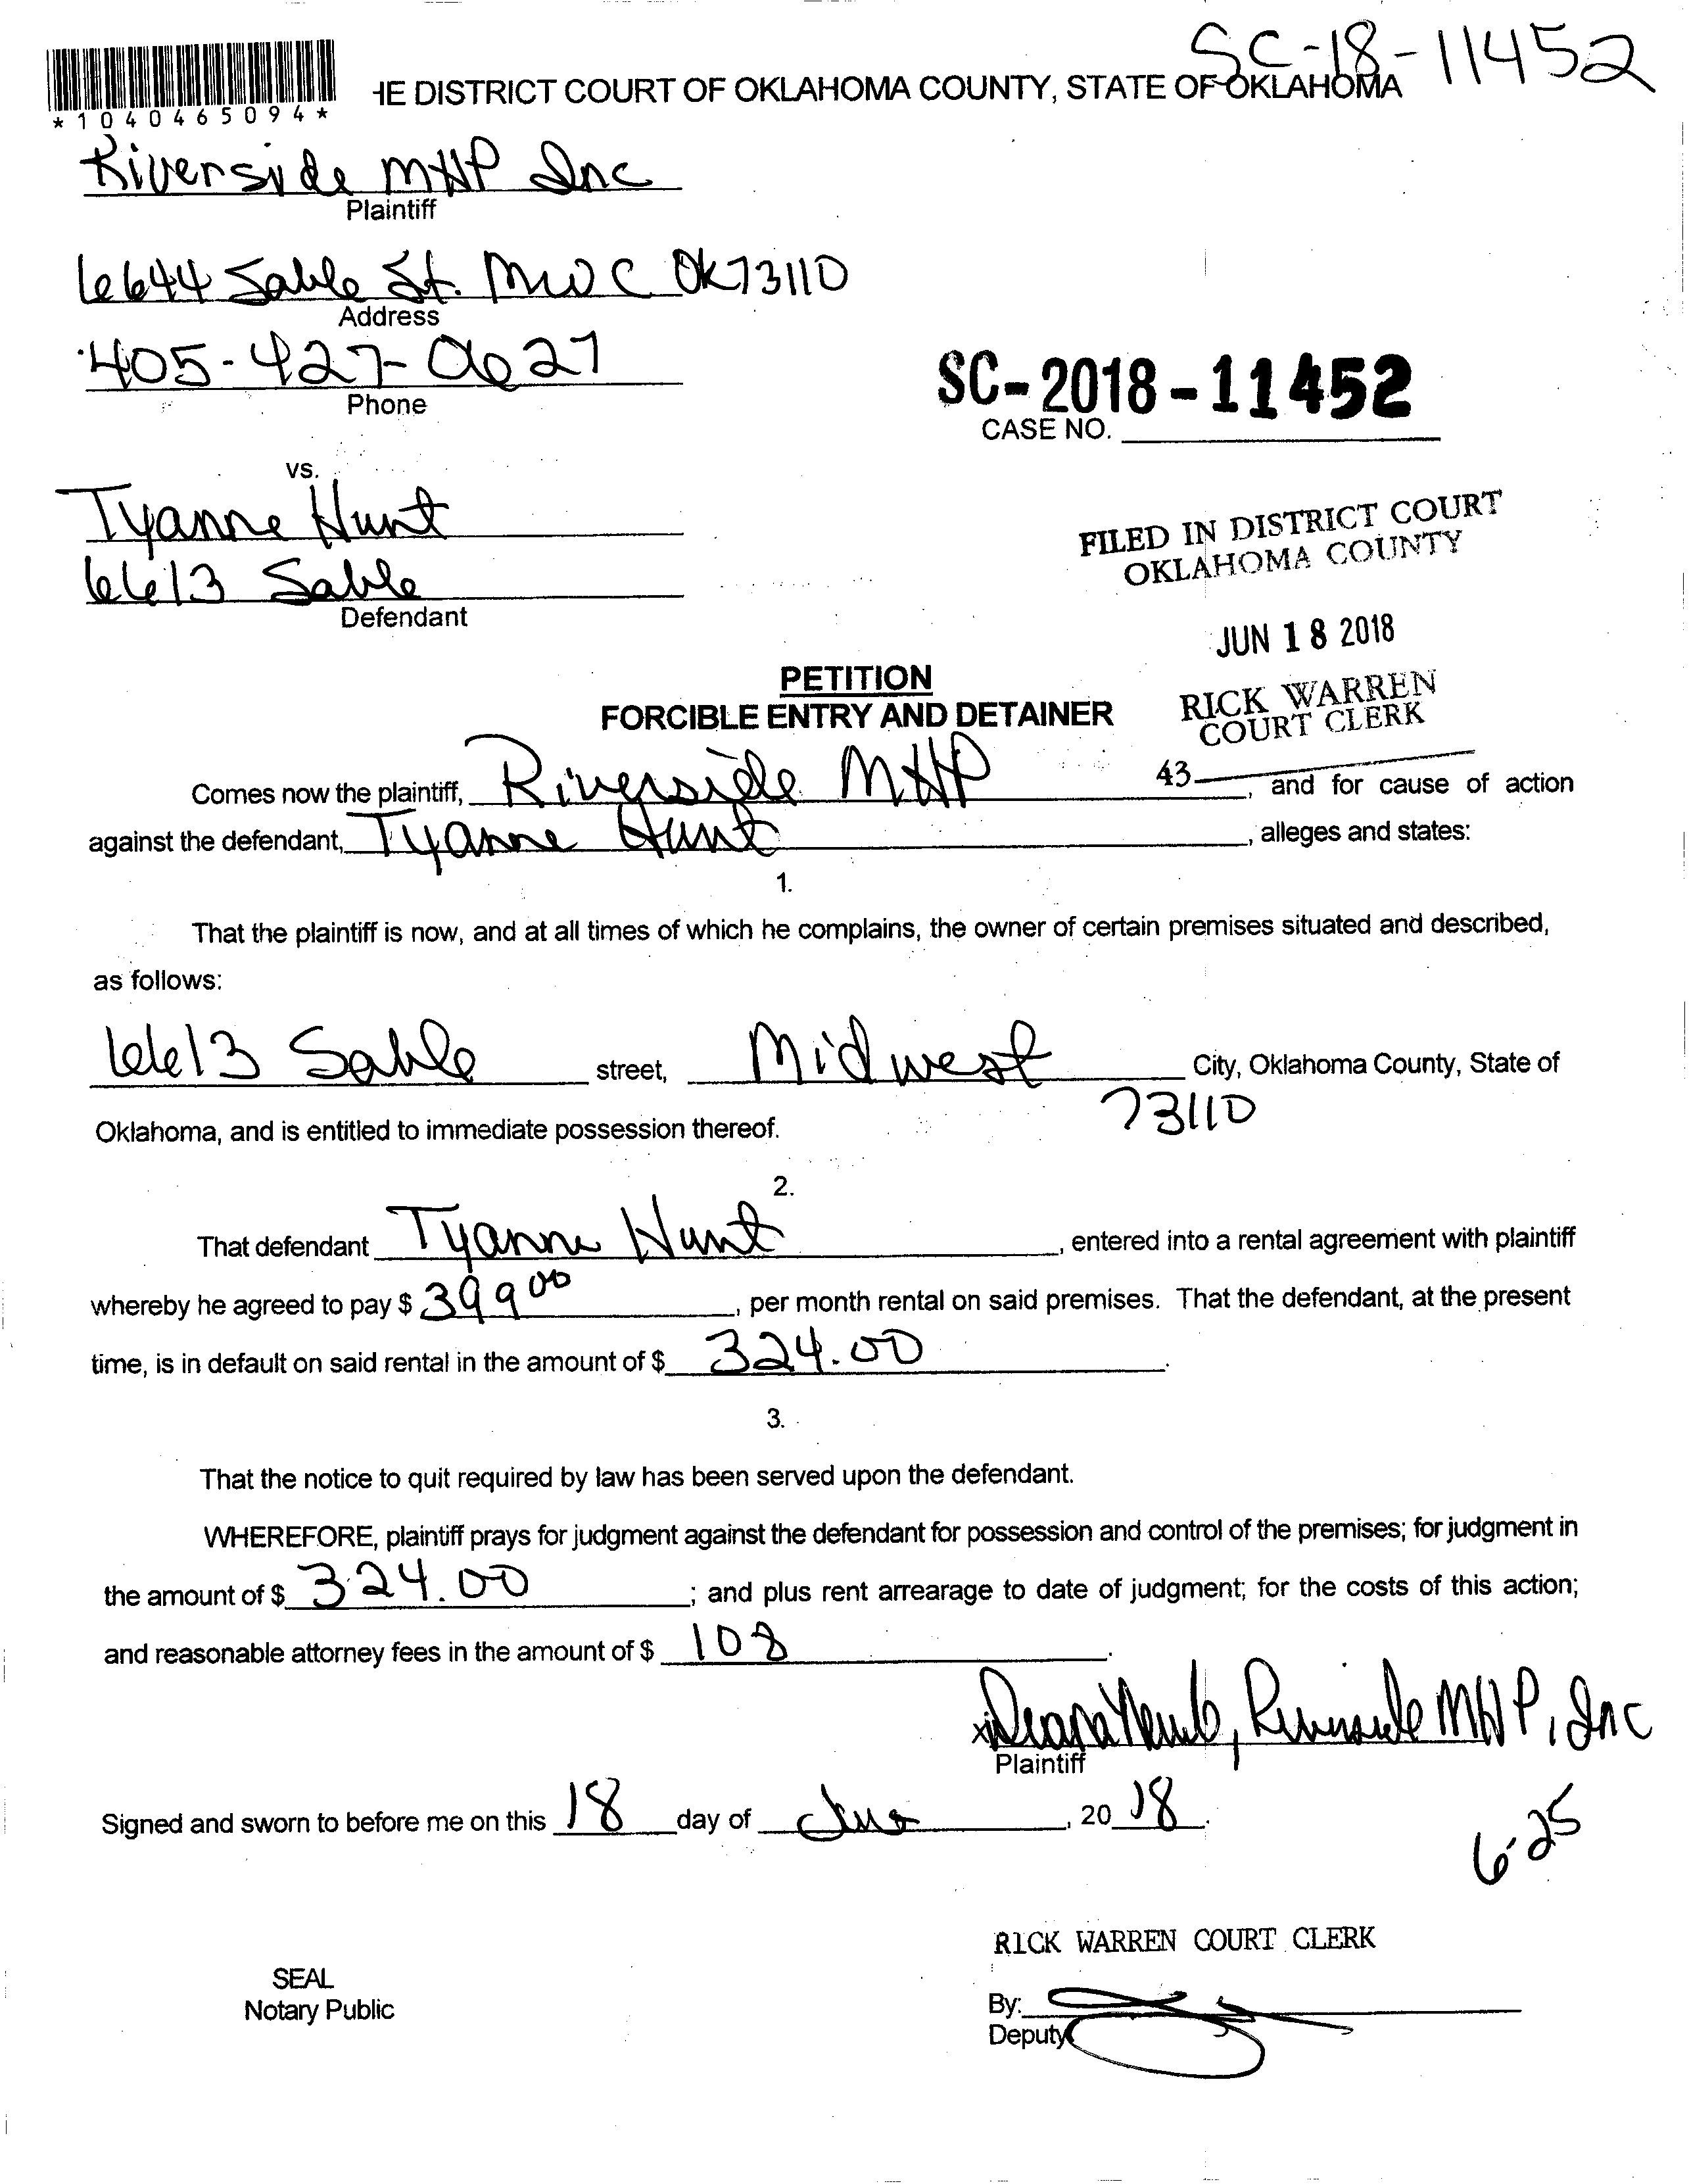 SC-18-11452
HE DISTRICT COURT OF OKLAHOMA COUNTY, STATE OF OKLAHOMA
*1040465094*
Riverside MHP Inc
Plaintiff
6644 Sable St. MWC OK 73110
Address
405-427-0627
Phone
SC-2018-11452
CASE NO.
vs.
Tyanne Hunt
6613 Sable
Defendant
FILED IN DISTRICT COURT
OKLAHOMA COUNTY
JUN 18 2018
RICK WARREN
COURT CLERK
43
PETITION
FORCIBLE ENTRY AND DETAINER
Comes now the plaintiff, Riverside MHP, and for cause of action
against the defendant, Tyanne Hunt, alleges and states:
1.
That the plaintiff is now, and at all times of which he complains, the owner of certain premises situated and described,
as follows:
6613 Sable street, Midwest City, Oklahoma County, State of
73110
Oklahoma, and is entitled to immediate possession thereof.
2.
That defendant Tyanne Hunt, entered into a rental agreement with plaintiff
whereby he agreed to pay $ 399 00, per month rental on said premises. That the defendant, at the present
time, is in default on said rental in the amount of $ 324.00.
3.
That the notice to quit required by law has been served upon the defendant.
WHEREFORE, plaintiff prays for judgment against the defendant for possession and control of the premises; for judgment in
the amount of $ 324.00; and plus rent arrearage to date of judgment; for the costs of this action;
and reasonable attorney fees in the amount of $ 108.
Riverside MHP, Inc
Plaintiff
Signed and sworn to before me on this 18 day of June, 2018.
6-25
RICK WARREN COURT CLERK
SEAL
Notary Public
By:
Deputy